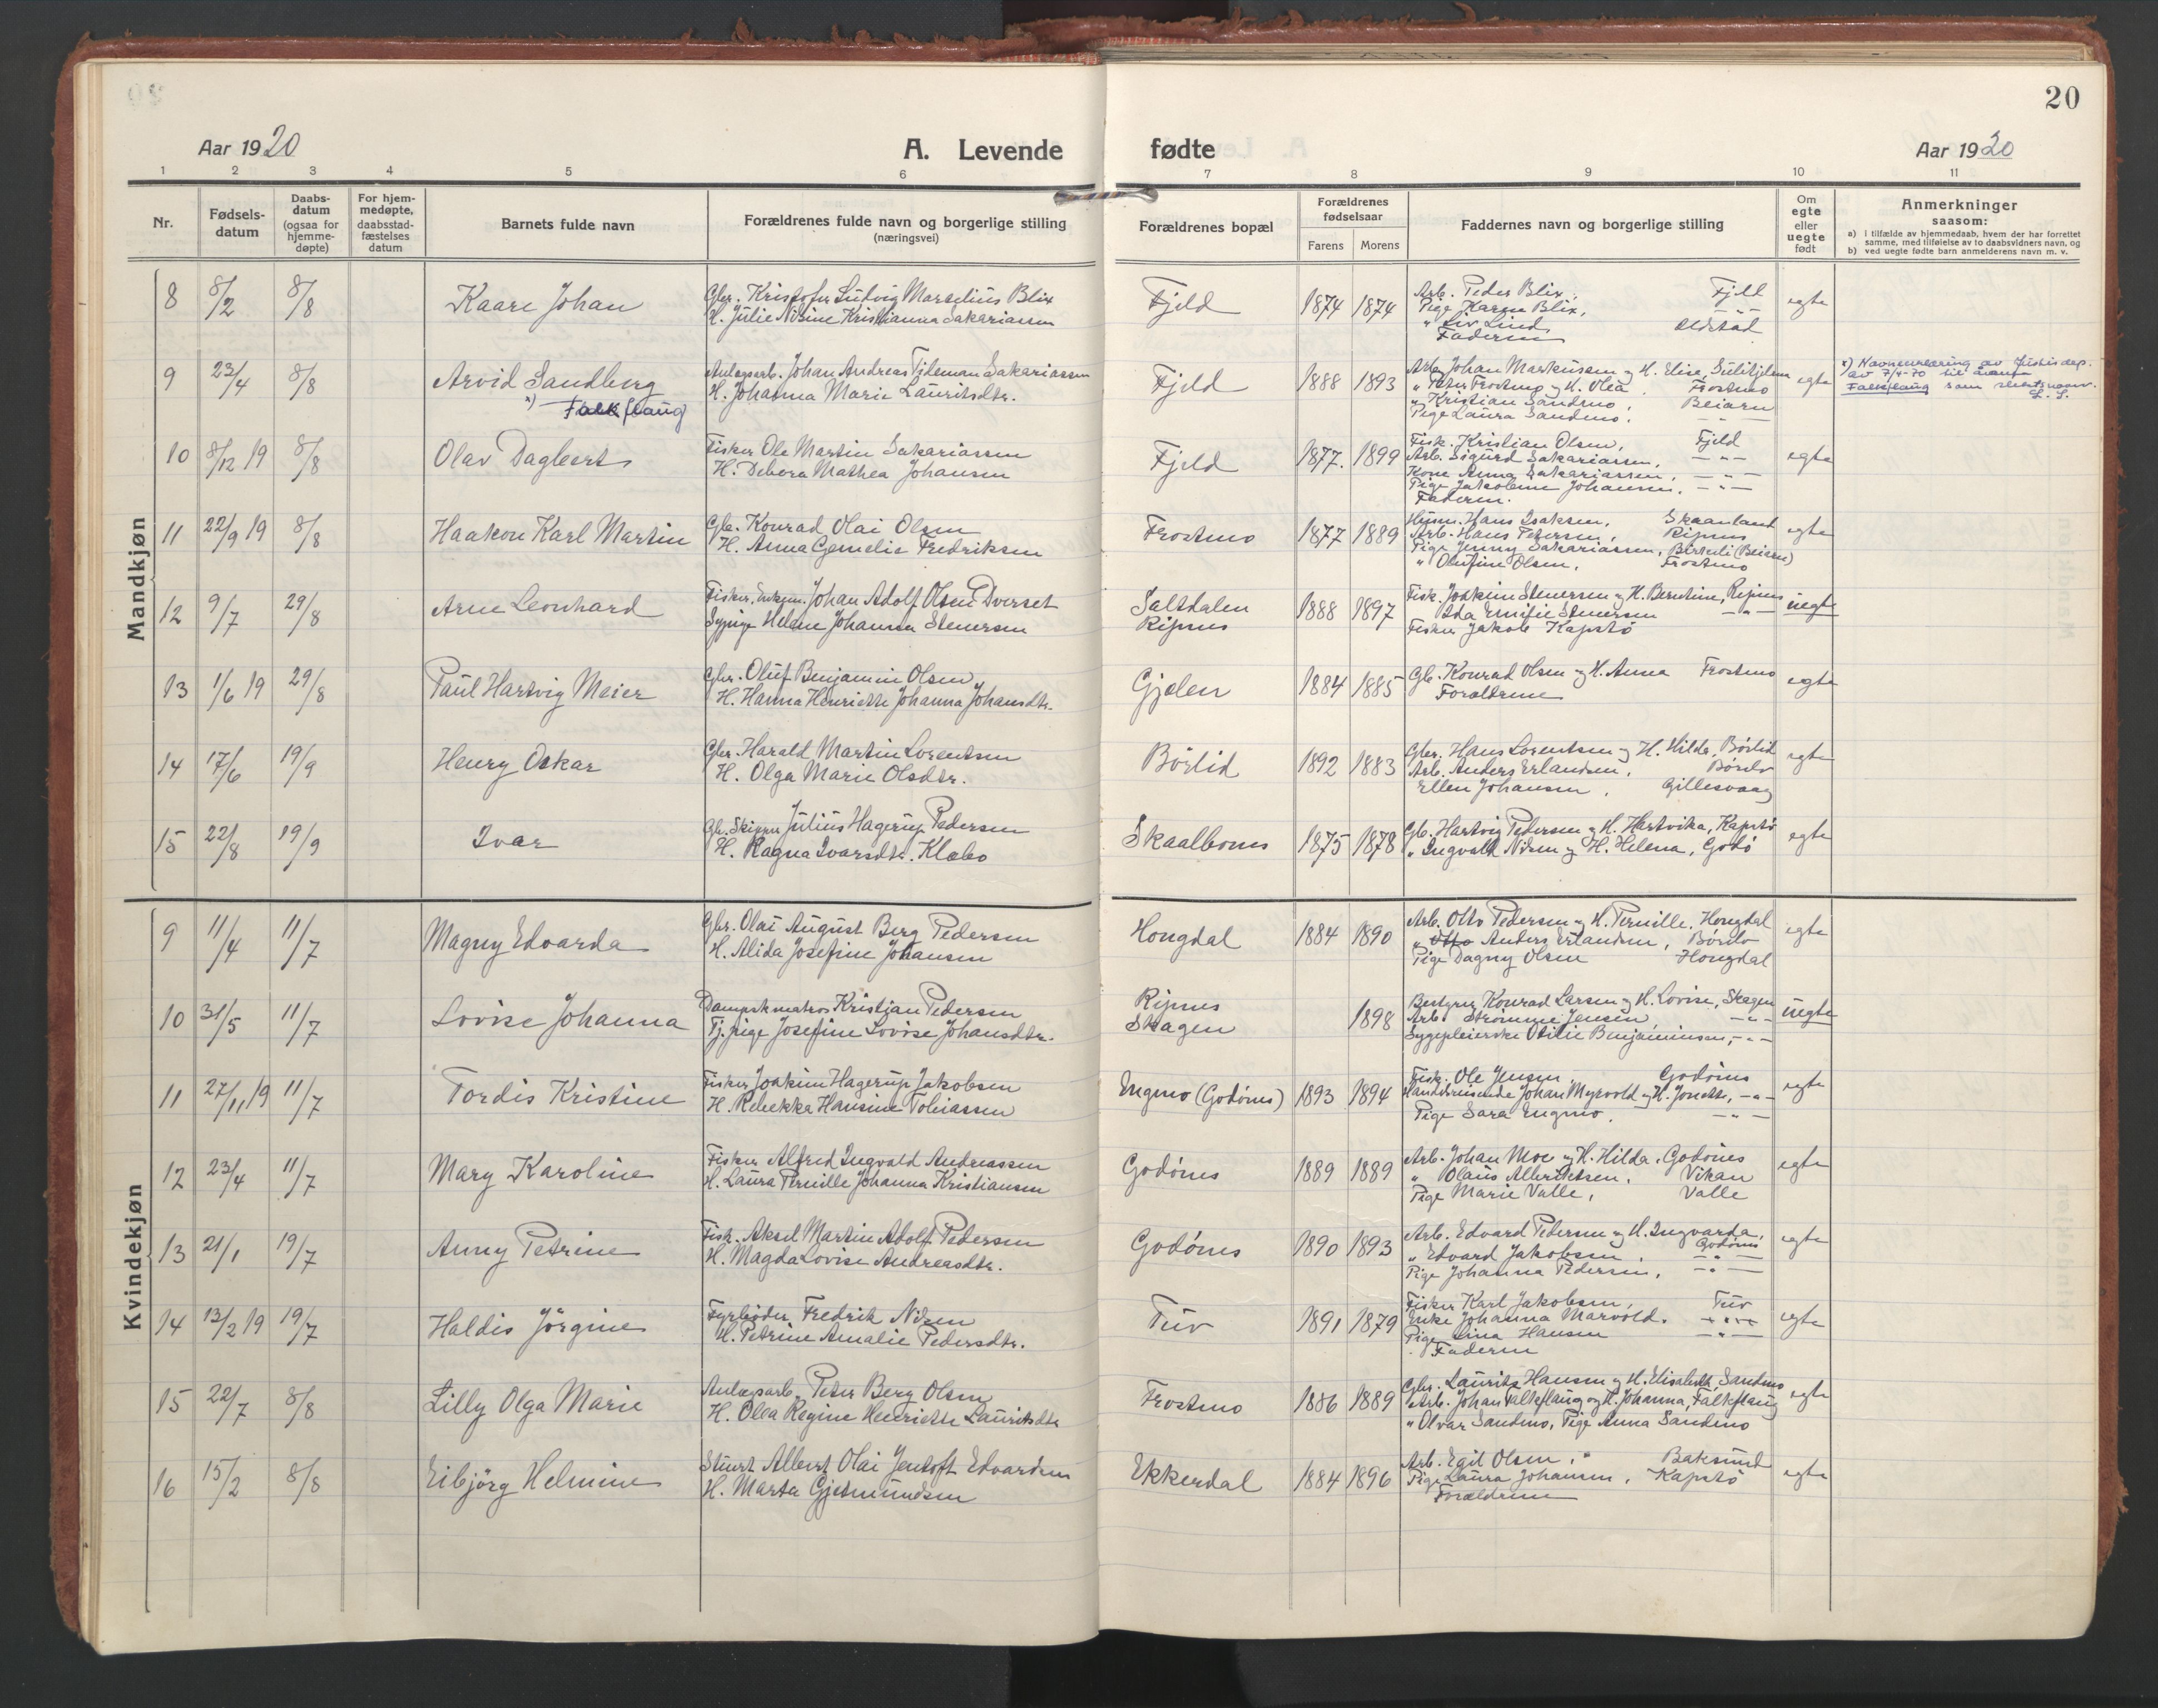 20
Aar 1920
A. Levende fødte
Aar 1920
1 2 3 4 5 6 7 8 9 10 11
Nr.
Fødsels-
datum
Daabs-
datum
(ogsaa for
hjemme-
døpte)
For hjem-
medøpte,
daabsstad-
fæstelses
datum
Barnets fulde navn
Forældrenes fulde navn og borgerlige stilling
(næringsvei)
Forældrenes bopæl
Forældrenes
fødselsaar
Farens Morens
Faddernes navn og borgerlige stilling
Om
egte
eller
uegte
født
Anmerkninger
saasom:
a) i tilfælde av hjemmedaab, hvem der har forrettet
samme, med tilføielse av to daabsvidners navn, og
b) ved uegte fødte barn anmelderens navn m. v.
Mandkjøn
8 8/2 8/8 Kaare Johan
Gbr. Kristofer Ludvig Marselius Blix
H. Julie Nisine Kristianna Sakariassen
Fjeld 1874 1874
Arb. Peder Blix, Fjell
Pige Karen Blix, -"-
" Liv Lind,
Faderen
egte
9 23/4 8/8 Arvid Sandberg
x) Falkflaug
Anlægsarb. Johan Andreas Tideman Sakariassen
H. Johanna Marie Lauritsdtr.
Fjeld 1888 1893
Arb. Johan Markussen og H. Elise, Sulitjelma
" Peter Frostmo og H. Olea, Frostmo
" Kristian Sandmo, Beiarn
Pige Laura Sandmo, -"-
egte
x) Navneendring av Justisdep.
av 7/4-70 til
Falkflaug som slektsnavn.
10 8/12 19 8/8 Olav Dagbert
Fisker Ole Martin Sakariassen
H. Debora Mathea Johansen
Fjeld 1877. 1899
Fisk. Kristian Olsen, Fjeld
Arb. Sigurd Sakariassen, -"-
Kone Anna Sakariassen, -"-
Pige Jakobine Johansen, -"-
Faderen.
egte
11 22/9 19 8/8 Haakon Karl Martin
Gbr. Konrad Olai Olsen
H. Anna Cornelie Fredriksen
Frostmo 1877 1889
Husm. Hans Isaksen, Skaanland
Arb. Hans Petersen, Ripnes
Pige Jenny Sakariassen, (Beiarn)
" Olufine Olsen, Frostmo
egte
12 9/7 29/8 Arne Leonhard
Fisker, Enkem. Johan Adolf Olsen Dverset
Sypige Helene Johanna Stenersen
Saltdalen
Ripnes
1888 1897
Fisk. Joakim Stenersen og H. Berntine, Ripnes
Ida Emilie Stenersen -"-
Fisker Jakob Kapstø
uegte
13 1/6 19 29/8 Paul Hartvig Meier
Gbr. Oluf Benjamin Olsen
H. Hanna Henriette Johanna Johansdtr.
Gjelen 1884 1885
Gb. Konrad Olsen og H. Anna Frostmo
Forældrene
egte
14 17/6 19/9 Henry Oskar
Gbr. Harald Martin Lorentsen
H. Olga Marie Olsdtr.
Børlid 1892 1883
Gbr. Hans Lorentsen og H. Hilda, Børlid
Arb. Anders Erlandsen,
Ellen Johansen, Gillesvaag
egte
15 22/8 19/9 Ivar
Gb. Skipper Julius Hagerup Pedersen
H. Ragna Ivarsdtr. Klæbo
Skaalbones 1875 1878
Gb. Hartvig Pedersen og H. Hartvika, Kapstø
" Ingvald Nilsen og H. Helena, Godø
egte
Kvindekjøn
9 11/4 11/7 Magny Edvarda
Gbr. Olai August Berg Pedersen
H. Alida Josefine Johansen
Hongdal 1884 1890
Arb. Otto Pedersen og H. Pernille, Hongdal
" Otto Anders Erlandsen,
Pige Dagny Olsen Hongdal
egte
10 31/5 11/7 Lovise Johanna
Dampskmatros Kristjan Pedersen
Tj. pige Josefine Lovise Johansdtr.
Ripnes
Skagen
1898
Bestyrer Konrad Larsen og H. Lovise, Skagen
Arb. Strømme Jensen -"-
Sygepleierske Otilie Benjaminsen, -"-
uegte
11 27/11 19 11/7 Tordis Kristine
Fisker Joakim Hagerup Jakobsen
H. Rebekka Hansine Tobiassen
Engmo (Godønes) 1893 1894
Fisk. Ole Jensen, Godønes
Handelsreisende Johan Myrvold og H. Jonette, -"-
Pige Sara Engmo, -"-
egte
12 23/4 11/7 Mary Karoline
Fisker Alfred Ingvald Andreassen
H. Laura Pernille Johanna Kristiansen
Godønes 1889 1889
Arb. Johan Moe og H. Hilda, Godønes
" Olaus Albertsen, Vikan
Pige Marie Valle, Valle
egte
13 21/1 19/7 Anny Petrine
Fisk. Aksel Martin Adolf Pedersen
H. Magda Lovise Andreasdtr.
Godønes 1890 1893
Arb. Edvard Pedersen og H. Ingvarda,
Godønes
" Edvard Jakobsen, -"-
Pige Johanna Pedersen, -"-
egte
14 13/2 19 19/7 Haldis Jørgine
Fyrbøder Fredrik Nilsen
H. Petrine Amalie Pedersdtr.
Tuv 1891 1879
Fisker Karl Jakobsen, Tuv
Enke Johanna Marvold. -"-
Pige Lina Hansen -"-
Faderen
egte
15 22/7 8/8 Lilly Olga Marie
Anlægsarb. Peter Berg Olsen
H. Olea Regine Henriette Lauritsdtr.
Frostmo 1886 1889
Gbr. Laurits Hansen og H. Elisabeth, Sandmo
Arb. Johan Falkflaug og H. Johanna, Falkflaug
" Olvar Sandmo, Pige Anna Sandmo
egte
16 15/2 8/8 Eibjørg Helmine
Stuert Albert Olai Jentoft Edvardsen
H. Marta Gjetmundsen
Ekkerdal 1884 1896
Arb. Egil Olsen, Baksund
Pige Laura Johansen, Kapstø
Forældrene
egte